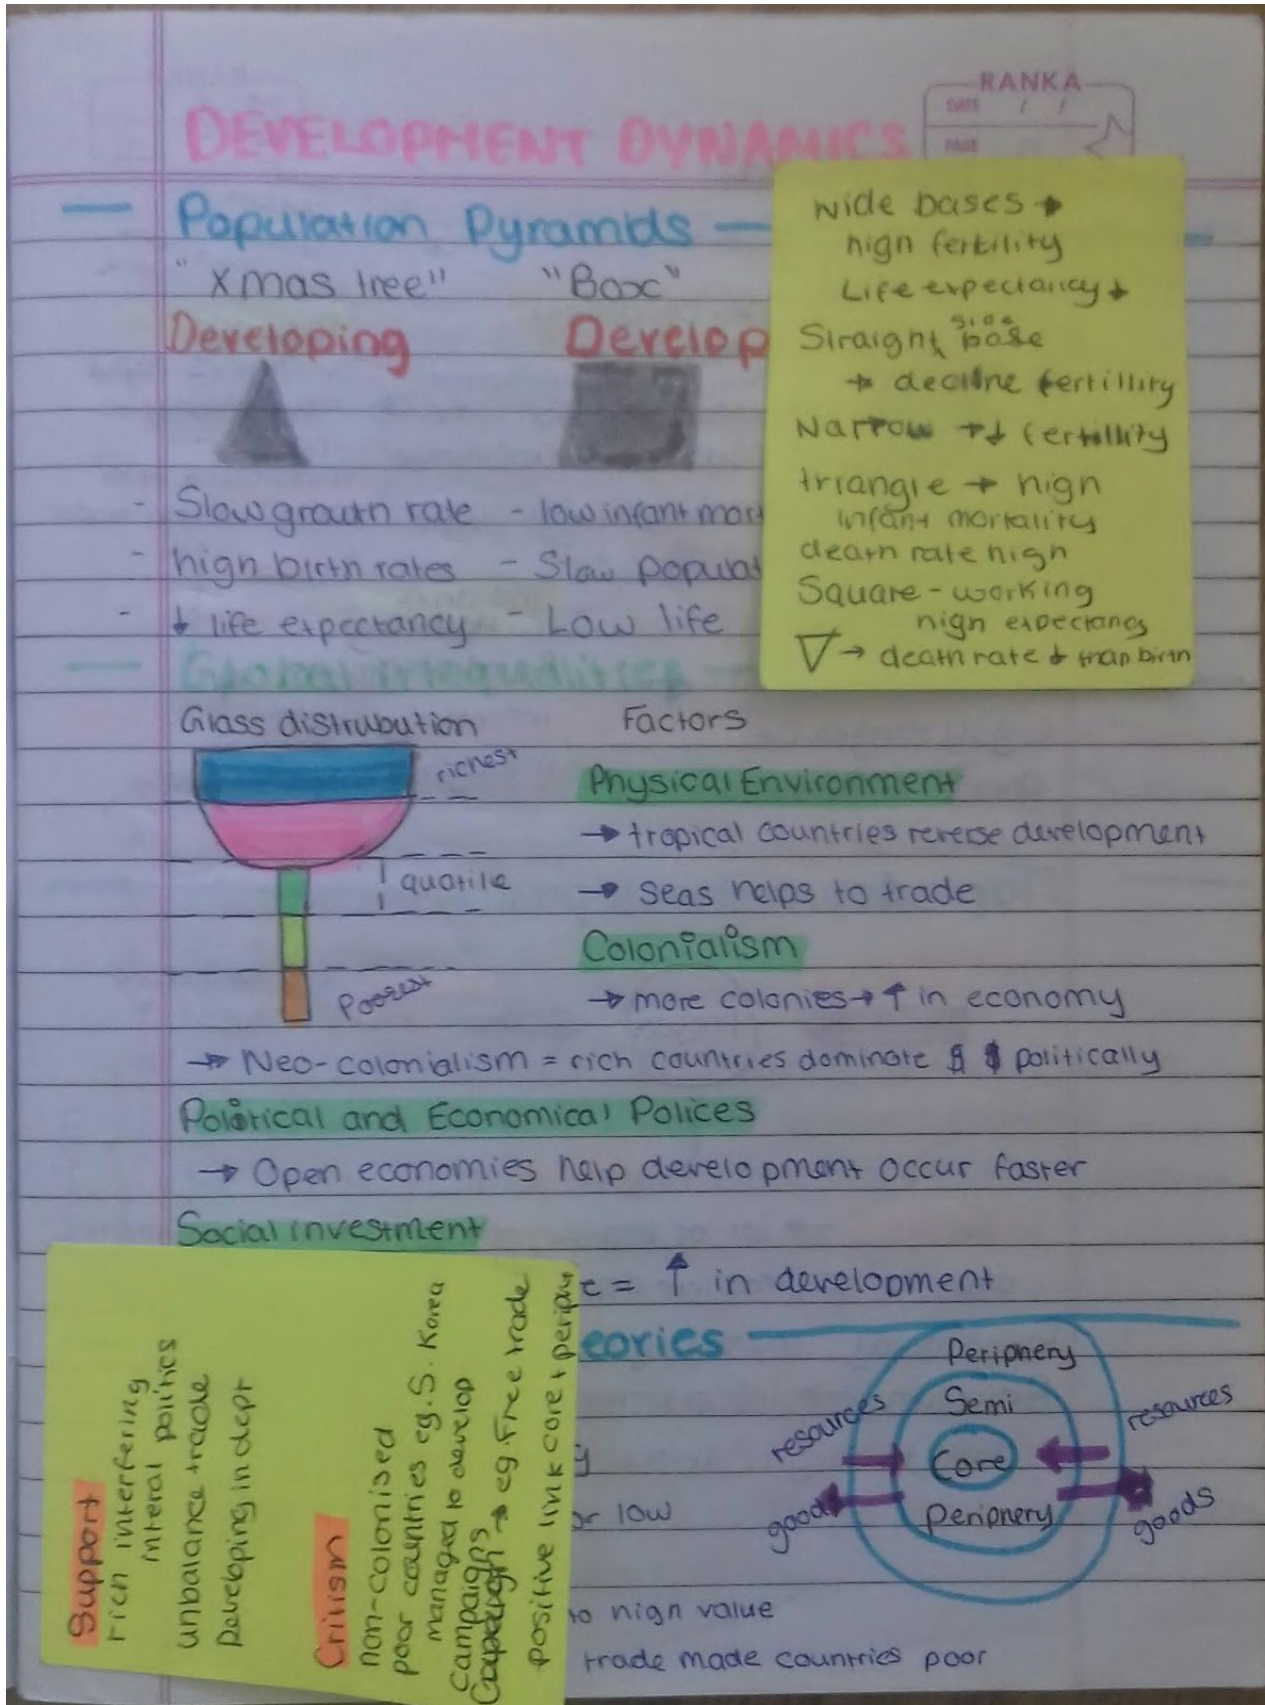 RANKA
DATE / /
PAGE
DEVELOPMENT DYNAMICS
Population Pyramids
"Xmas tree" "Box"
Developing Develop
- Slow growth rate - low infant mor
- high birth rates - Slow populat
- ↓ life expectancy - Low life
wide bases →
high fertility
Life expectancy ↓
side
Straight base
→ decline fertillity
Narrow → ↓ fertillity
triangle → high
infant mortality
death rate high
Square - working
high expectancy
▽ → death rate ↓ than birth
Global inequalities
Glass distrubution Factors
richest
quatile
Poorest
Physical Environment
→ tropical countries reverse development
→ seas helps to trade
Colonialism
→ more colonies → ↑ in economy
→ Neo-colonialism = rich countries dominate $ $ politically
Political and Economical Polices
→ Open economies help development occur faster
Social investment
e = ↑ in development
eories
y
or low
to high value
trade made countries poor
Periphery
Semi
Core
Periphery
resources
goods
resources
goods
Support
rich interfering
interal politics
unbalance trade
Developing in dept
Critism
non-colonised
poor countries eg. S. Korea
managed to develop
campaigns
→ eg. Free trade
positive link core + periphe